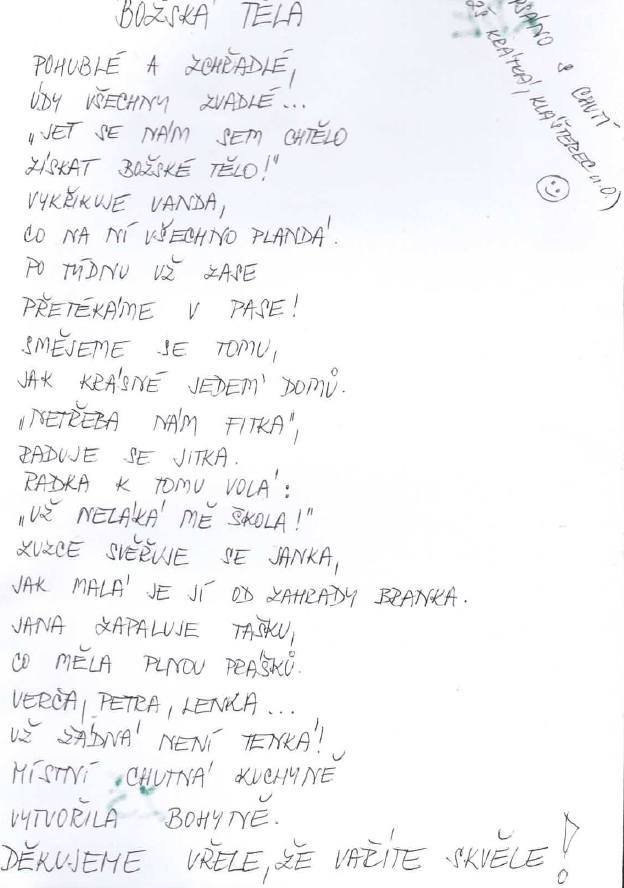 BOŽSKÁ TĚLA
POHUBLÉ A ZCHŘADLÉ,
ÚDY VŠECHNY ZVADLÉ...
„JEŤ SE NÁM SEM CHTĚLO
ZÍSKAT BOŽSKÉ TĚLO!"
VYKŘIKUJE VANDA,
CO NA NÍ VŠECHNO PLANDÁ.
PO TÝDNU UŽ ZASE
PŘETÉKÁME V PASE!
SMĚJEME SE TOMU,
JAK KRÁSNÉ JEDEM DOMŮ.
„NETŘEBA NÁM FITKA",
RADUJE SE JITKA.
RADKA K TOMU VOLÁ:
„UŽ NELÁKÁ MĚ ŠKOLA!"
ZUZCE SVĚŘUJE SE JANKA,
JAK MALÁ JE JÍ OD ZAHRADY BRANKA.
JANA ZAPALUJE TAŠKU,
CO MĚLA PLNOU PRÁŠKŮ.
VERČA, PETRA, LENKA...
UŽ ŽÁDNÁ NENÍ TENKÁ!
MÍSTNÍ CHUTNÁ KUCHYNĚ
VYTVOŘILA BOHYNĚ.
DĚKUJEME VŘELE, ŽE VAŘÍTE SKVĚLE!
S CHUTÍ
ZŠ KRÁTKÁ, KLÁŠTEREC n.O)